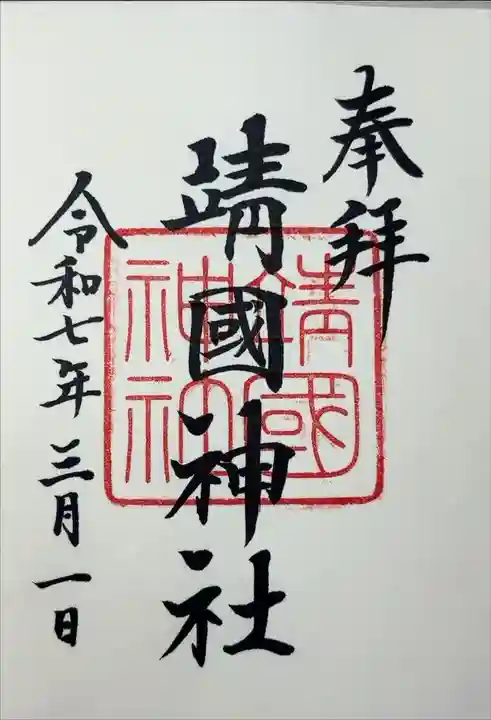 奉拝
靖國神社
令和七年三月一日
靖國
神社